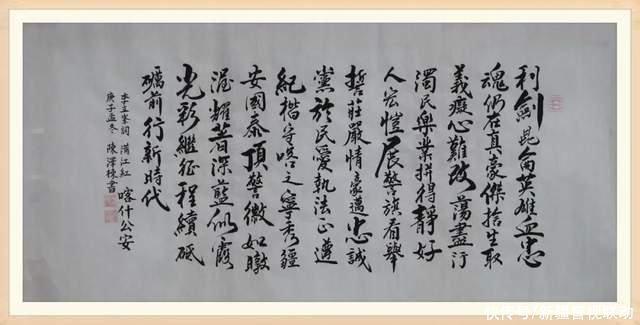 利劍昆侖英雄血忠
魂仍在真豪傑捨生取
義癡心難改蕩盡汙
濁民樂業拼得靜好
人宏愷展警旗看舉
誓莊嚴情豪邁忠誠
黨於民愛執法正遵
紀楷守喀之寧秀疆
安國泰頂警徽如暾
渥耀普深藍似霞
光彩繼征程續砥
礪前行新時代
李立峯詞 滿江紅 喀什公安
庚子孟冬 陳澤棟書
快传号/新疆视联动